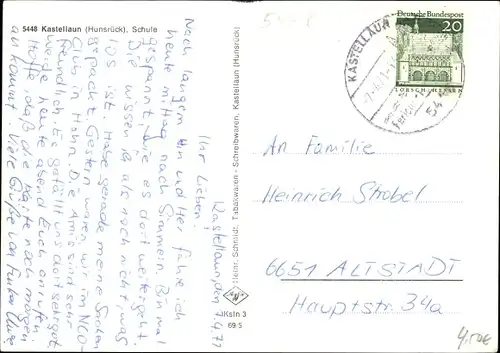 5448 Kastellaun (Hunsrück), Schule
Kastellaun, den 7.4.71
Ihr Lieben!
Nach langem Hin und Her fahre ich
heute mittag nach Simmern. Bin mal
gespannt wie es dort weitergeht.
Die wissen ja noch nicht was
los ist. Habe gerade meine Sachen
gepackt. Gestern waren wir im NCO-
Club in Hahn. Die Amis sind sehr
freundlich. Es gefällt uns dort sehr gut.
Werde heute abend Euch anrufen.
Hoffe, daß die Karte noch morgen
ankommt. Viele Grüße von
Heinr. Schmidt, Tabakwaren - Schreibwaren, Kastellaun (Hunsrück)
Ksln 3
69 S
KASTELLAUN
5448
Deutsche Bundespost
20
LORSCH/HESSEN
An Familie
Heinrich Strobel
6651 ALTSTADT
Hauptstr. 34a